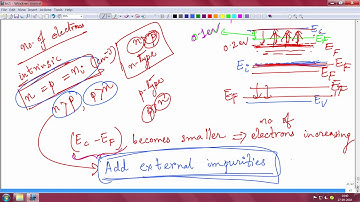 no of electrons
intrinsic
n = p = ni (cm-3)
n>p p>n
n>p
n-type
p-type
p>n
0.1eV
0.2eV
Ec
EF
EF
Ei
EF
EF
Ev
(Ec - EF) becomes smaller ⇒ no of electrons increasing
Add external impurities